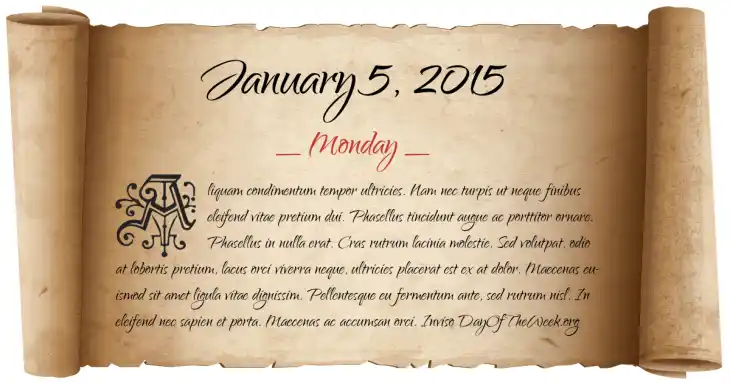 January 5, 2015
_ Monday _
Aliquam condimentum tempor ultricies. Nam nec turpis ut neque finibus
eleifend vitae pretium dui. Phasellus tincidunt augue ac porttitor ornare.
Phasellus in nulla erat. Cras rutrum lacinia molestie. Sed volutpat, odio
at lobortis pretium, lacus orci viverra neque, ultricies placerat est ex at dolor. Maecenas eu-
ismod sit amet ligula vitae dignissim. Pellentesque eu fermentum ante, sed rutrum nisl. In
eleifend nec sapien et porta. Maecenas ac accumsan orci. Inviso DayOfTheWeek.org